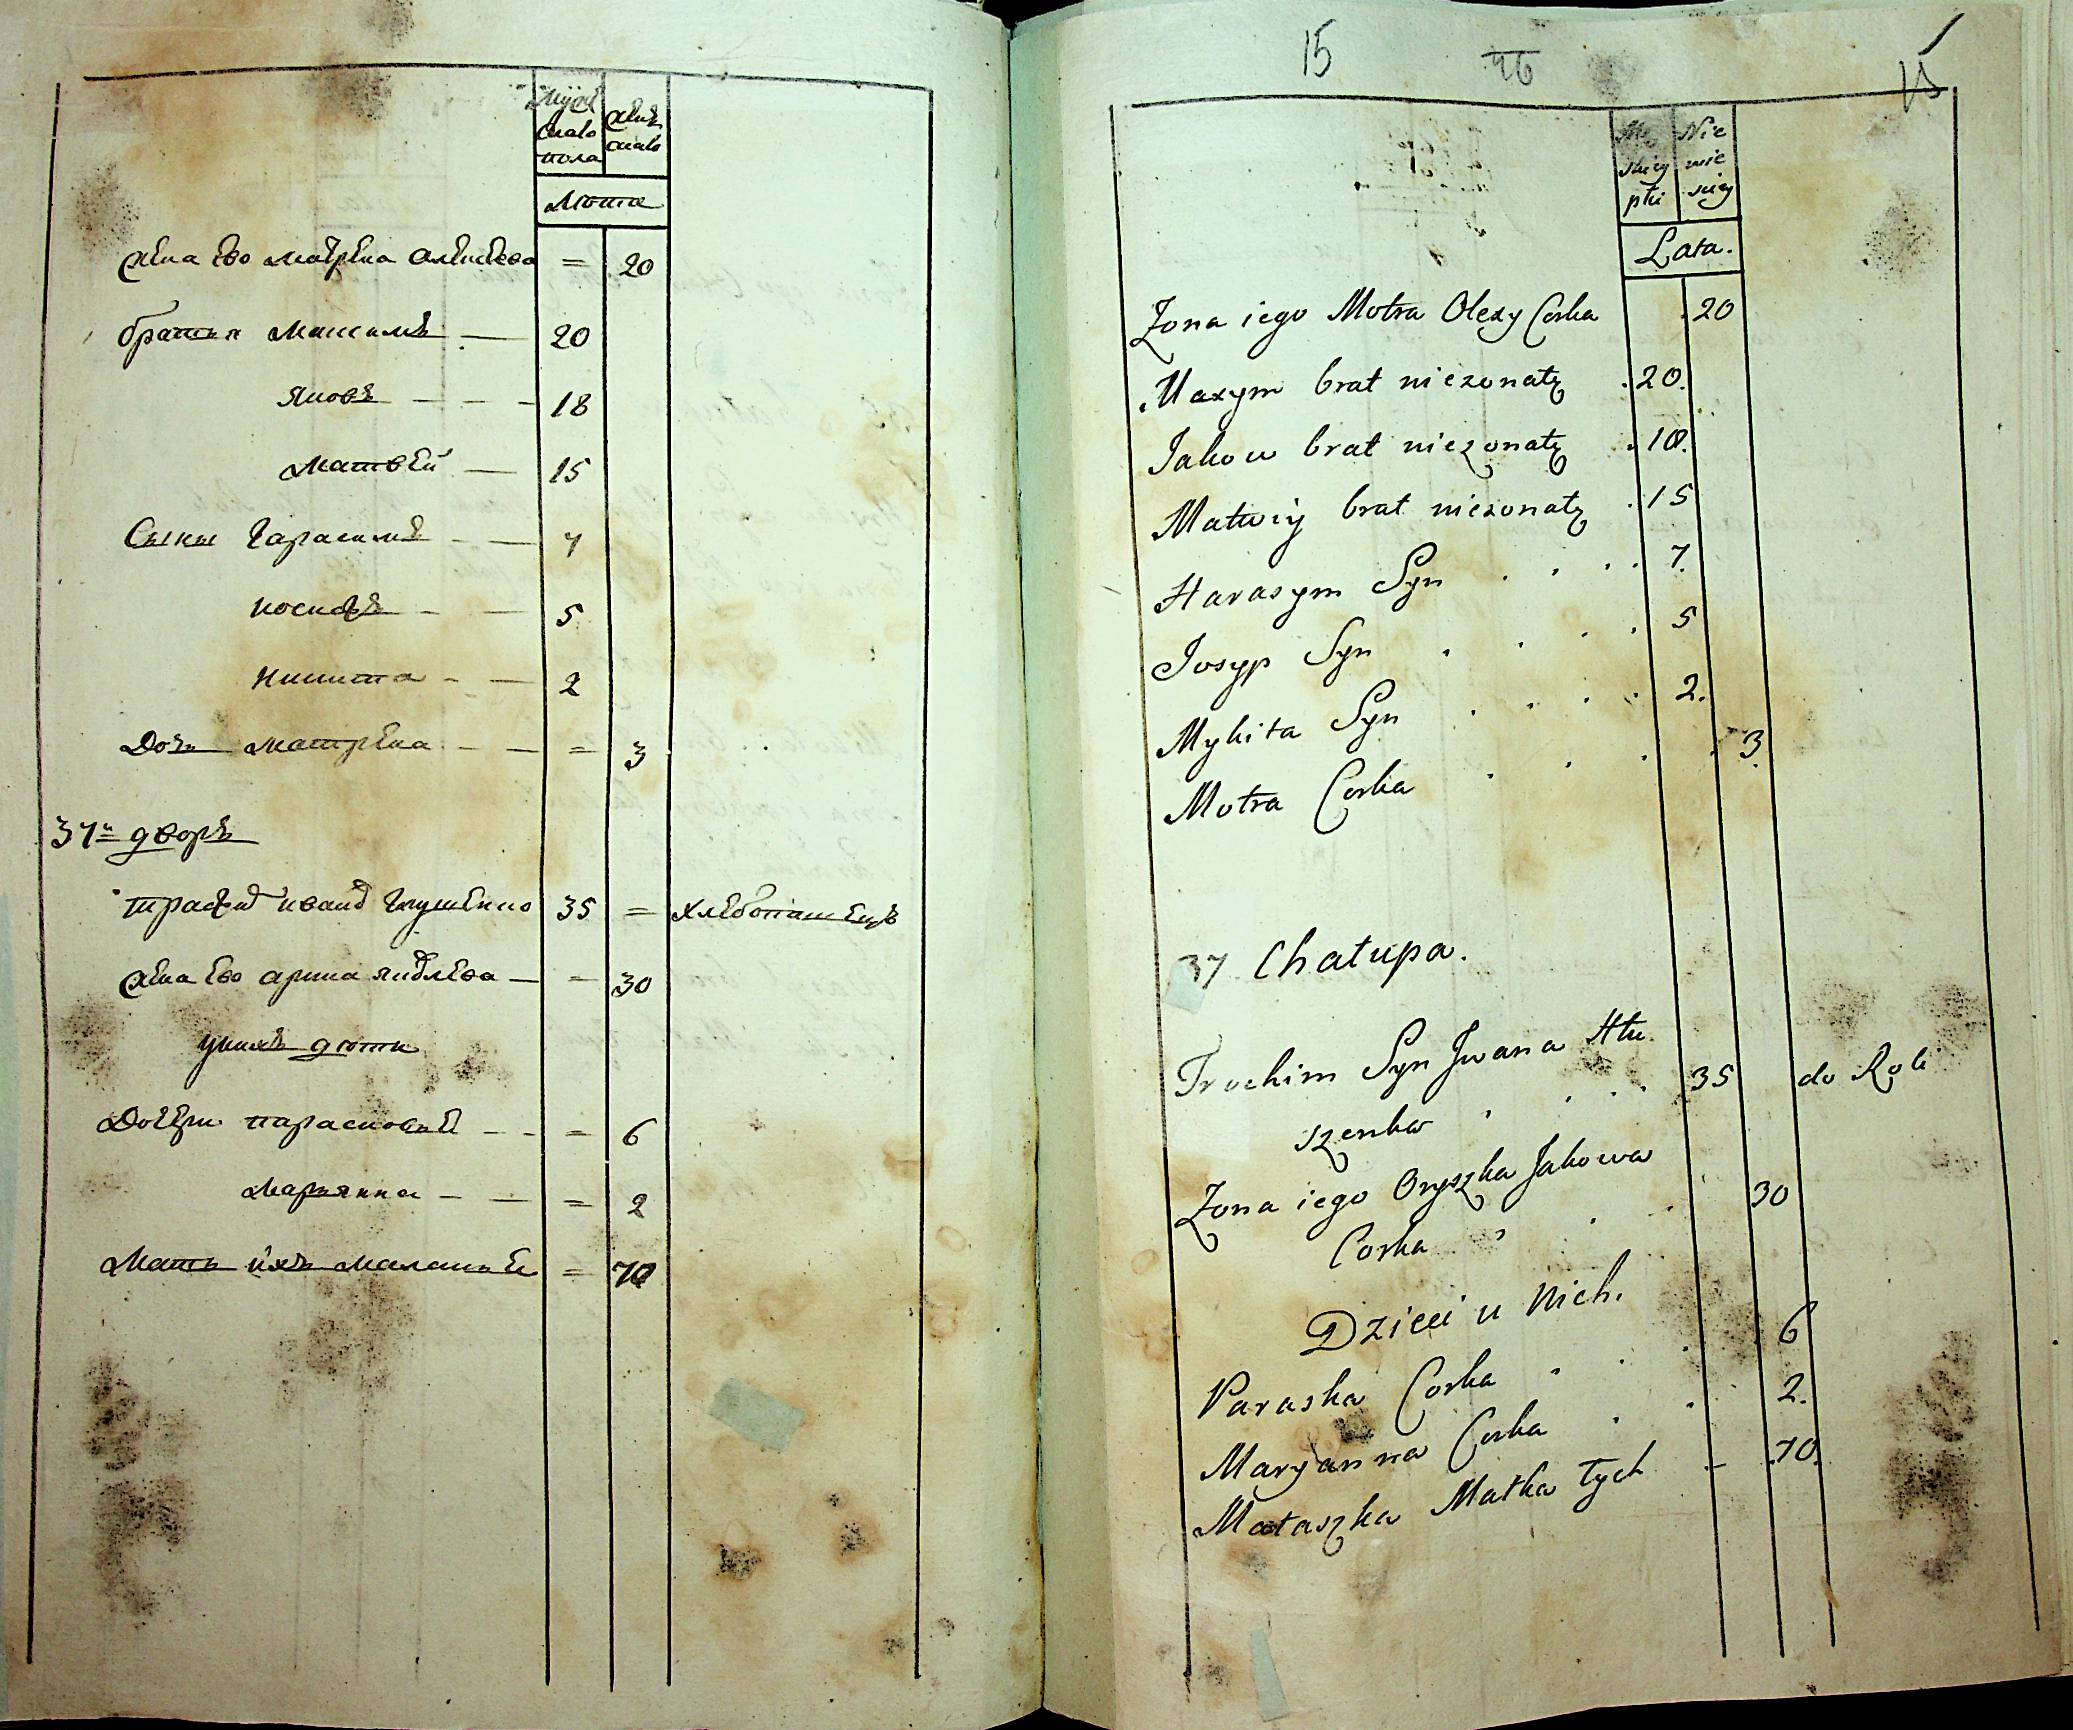 Мужеска пола
женска
Лѣта
жена ево матрена алексѣева = 20
братья максимъ — 20
яковъ — — 18
матвей — 15
Сыны Гарасимъ — — 7
иосифъ — — 5
никита — — 2
Дочь матрена — — = 3
37й дворъ
трофим иванов Глушенко 35 = хлебопашецъ
жена ево арина яковлева — = 30
у нихъ дети
Дочери парасковия — — = 6
марьянна — — = 2
Мать ихъ маланья = 70
15
46
15
Mę skiey płci
Nie wie sciey
Lata.
Zona iego Motra Olexy Corka 20
Maxym brat niezonaty 20.
Jakow brat niezonaty 18.
Matwiy brat niezonaty 15
Harasym Syn . . . . 7.
Josyp Syn . . . . 5
Mykita Syn . . . . 2.
Motra Corka . . . . 3.
37 Chałupa.
Trochim Syn Jwana Hłu
szenko . . . . 35 do Roli
Zona iego Oryszka Jakowa
Corka . . . 30
Dzieci u nich.
Paraska Corka . . . 6
Maryanna Corka . . 2.
Małaszka Matka tych – 70.